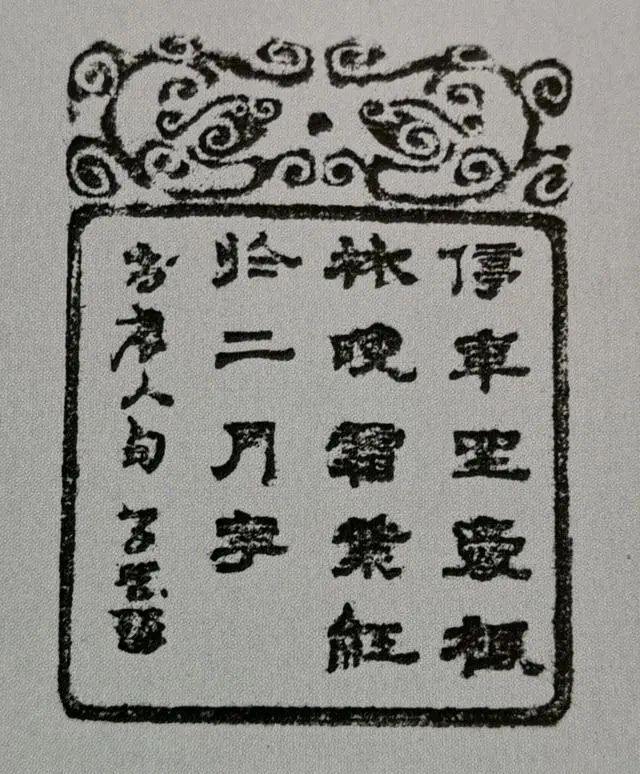 停車坐愛楓
林晚霜葉紅
於二月
書唐人句